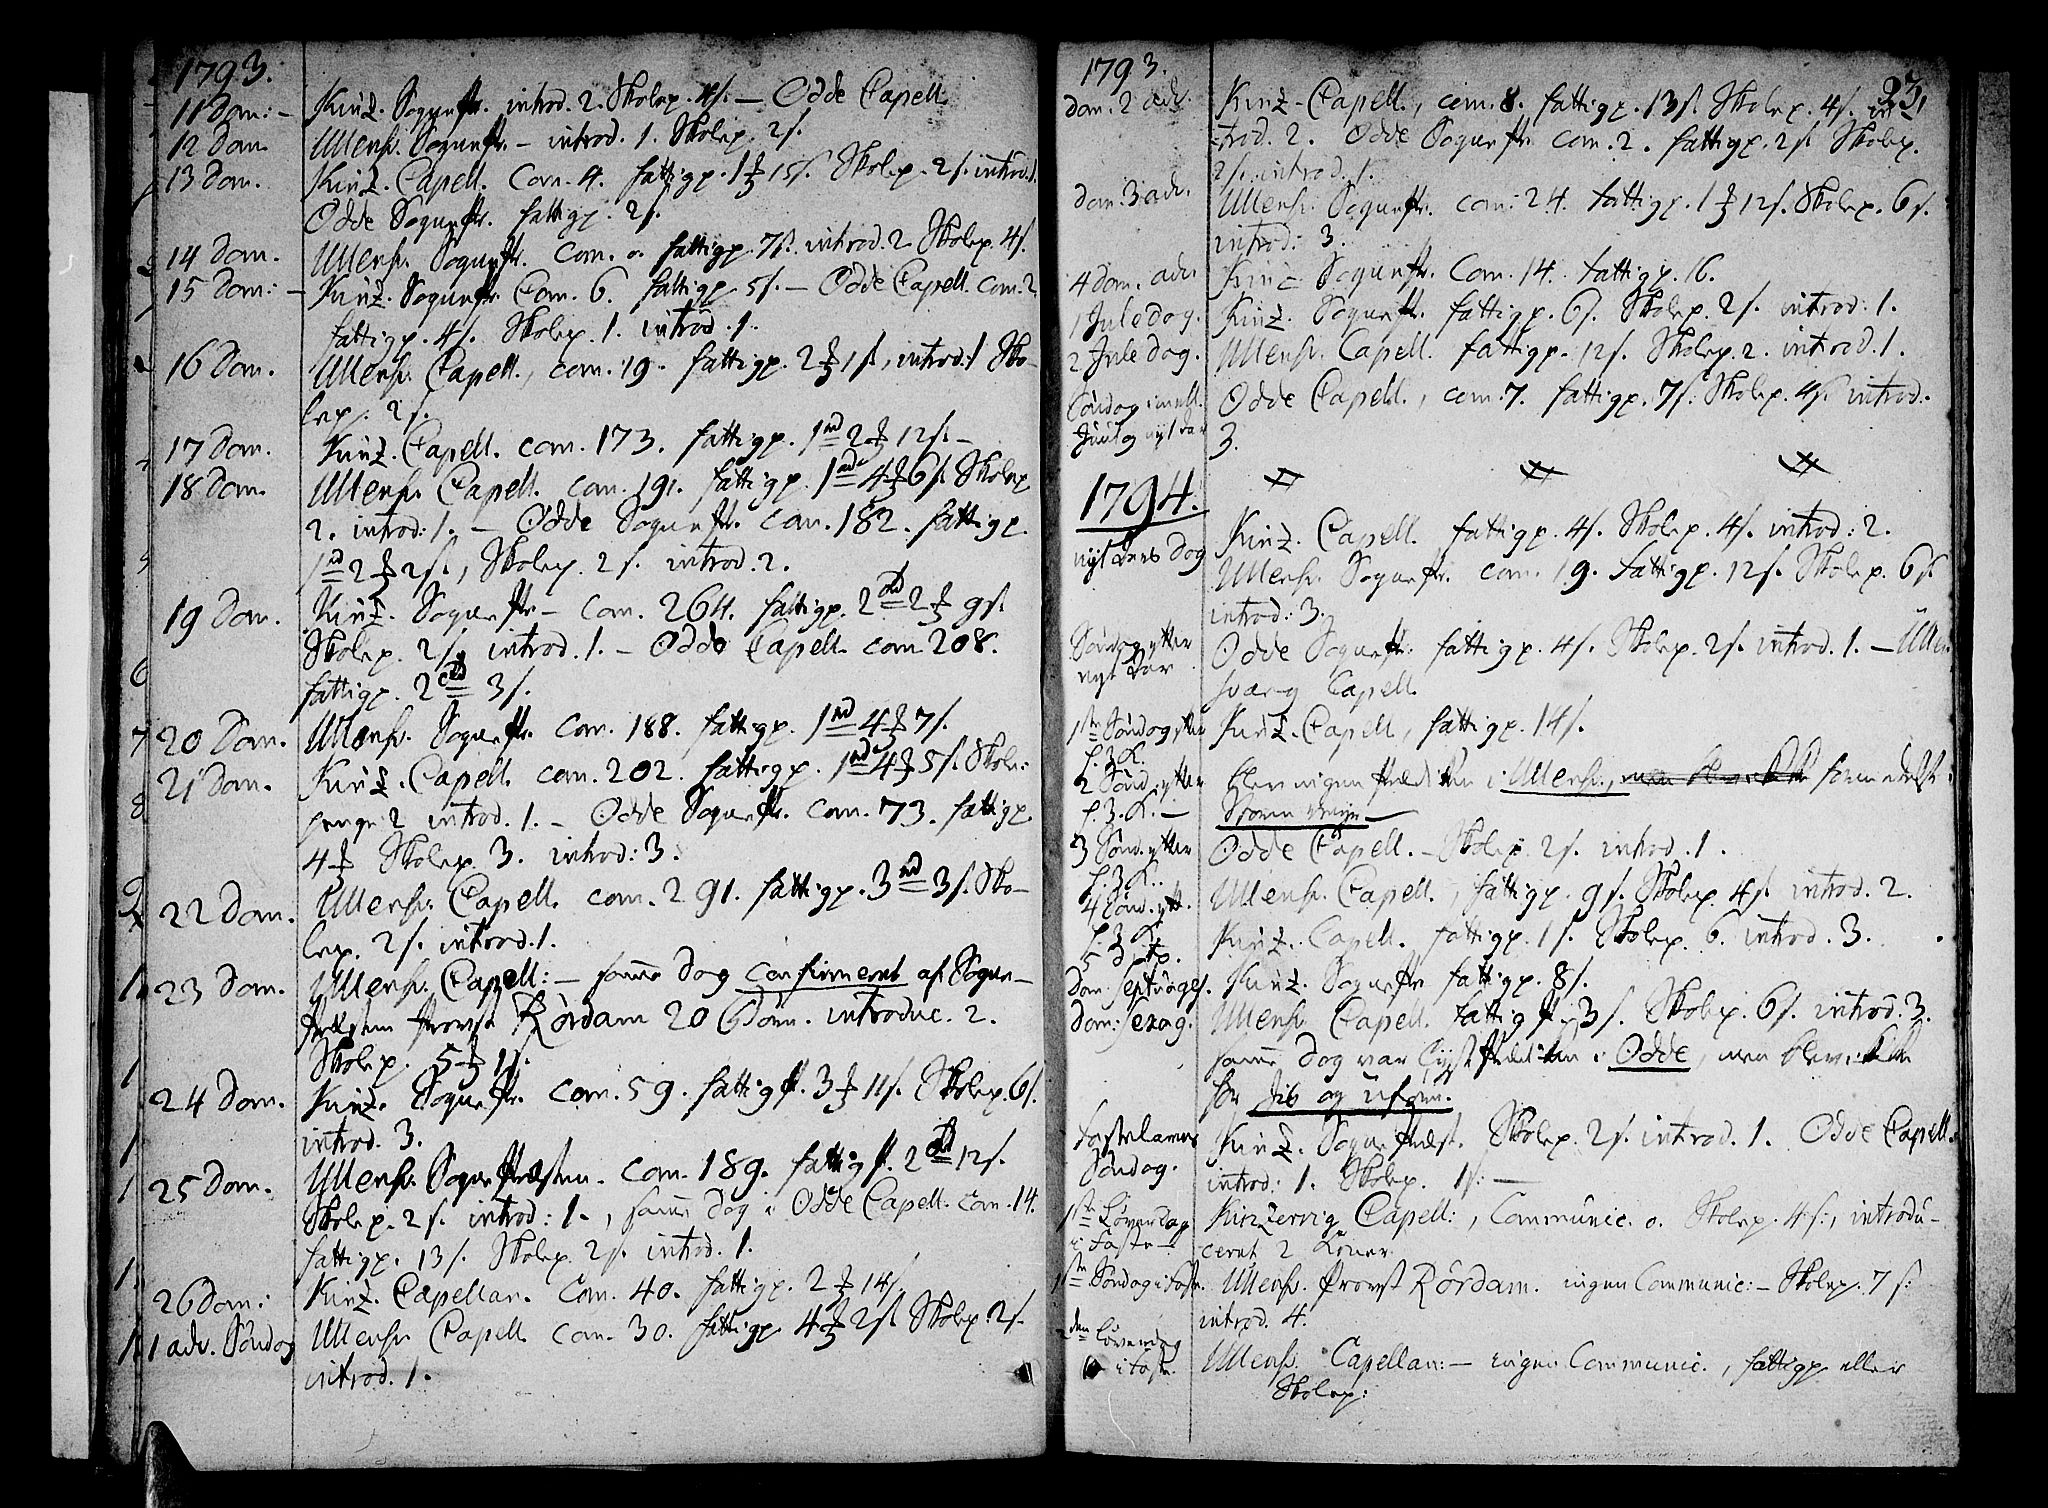 1793.
11 Dom: – Kinz. Sognepr. introd. 2. Skolep. 4 s. – Odde Capell.
12 Dom. Ullensv. Sognepr. – introd. 1. Skolep. 2 s.
13 Dom. Kinz. Capell. Com. 4. fattigp. 1 15 s. Skolep. 2 s. introd. 1.
Odde Sognepr. fattigp. 2 s.
14 Dom. Ullensv. Sognepr. com. 0. fattigp. 7 s. introd. 2 Skolep. 4 s.
15 Dom: – Kinz. Sognepr. Com. 6. fattigp. 5 s. – Odde Capell. com. 2
fattigp. 4 s. Skolep. 1. introd. 1.
16 Dom. Ullensv. Capell., com. 19. fattigp. 2 1 s., introd: 1 Sko-
lep. 2 s.
17 Dom. Kinz. Capell. com. 173. fattigp. 1 2 12 s. –
18 Dom. Ullensv. Capell. com. 191. fattigp. 1 4 6 s. Skolep
2. introd: 1. – Odde Sognepr. com. 182. fattigp.
1 2 2 s., Skolep. 2 s. introd. 2.
19 Dom. Kinz. Sognepr – com. 264. fattigp. 2 2 9 s.
Skolep. 2 s. introd. 1. – Odde Capell. com 208.
fattigp. 2 3 s.
20 Dom. Ullensv. Sognepr. com. 188. fattigp. 1 4 7 s.
21 Dom. Kinz. Capell. com. 202. fattigp. 1 4 5 s. Skole:
penge 2 introd. 1. – Odde Sognepr. com. 73. fattigp.
4 Skolep. 3. introd: 3.
22 Dom. Ullensv. Capell. com. 291. fattigp. 3 3 s. Sko-
lep. 2 s. introd. 1.
23 Dom. Ullensv. Capell: – samme Dag confirmeret af Sogne-
præsten Provst Rördam 20 Börn. introduc. 2.
Skolep. 5 1 s.
24 Dom. Kinz. Sognepr. com. 59. fattigp. 3 11 s. Skolep. 6 s.
introd. 3.
25 Dom. Ullensv. Sognepræsten. com. 189. fattigp. 2 12 s.
Skolep. 2 s. introd: 1., samme Dag i Odde Capell. com. 14.
fattigp. 13 s. Skolep. 2 s. introd. 1.
26 Dom: Kinz. Capellan. Com. 40. fattigp. 2 14 s.
1 adv. Söndag Ullensv. Capell. com. 30. fattigp. 4 2 s. Skolep. 2 s.
introd. 1.
1793. 23.
dom. 2 adv. Kinz. Capell., com. 8. fattigp. 13 s. Skolep. 4 s. in-
trod. 2. Odde Sognepr. com. 2. fattigp. 2 s. Skolep.
2 s. introd. 1.
dom. 3 adv. Ullensv. Sognepr. com: 24. fattigp. 1 12 s. Skolep. 6 s.
introd: 3.
4 dom. adv. Kinz Sognepr. Com. 14. fattigp. 16.
1 Juledag. Kinz. Sognepr. fattigp. 6 s. Skolep. 2 s. introd: 1.
2 Juledag. Ullensv. Capell. fattigp. 12 s. Skolep. 2. introd. 1.
Söndag imell. Odde Capell., com. 7. fattigp. 7 s. Skolep. 4 s. introd.
Juul og nyt aar 3.
1794.
nyt Aars Dag Kinz. Capell. fattigp. 4 s. Skolep. 4 s. introd: 2.
Ullensv. Sognepr. com. 19. fattigp. 12 s. Skolep. 6 s.
introd: 3.
Söndag efter Odde Sognepr. fattigp. 4 s. Skolep. 2 s. introd. 1. – Ullen
nyt Aar svang Capell.
1ste Söndag efter Kinz. Capell, fattigp. 14 s.
h. 3 K.
2 Sönd. efter blev ingen Prædiken i Ullensv., formedelst
h. 3. K. – Storm
3 Sönd. efter Odde Capell. – Skolep. 2 s. introd. 1.
h. 3 K.
4 Sönd. eft. Ullensv. Capell., fattigp. 9 s. Skolep. 4 s. introd. 2.
h. 3 K.
5 Kinz. Capell. fattigp. 1 s. Skolep. 6. introd. 3.
Dom. septuages. Kinz. Sognepr fattigp. 8 s.
Dom: sexag. Ullensv. Capell. fattigp. 3 s. Skolep. 6 s. introd: 3.
samme Dag var lyst Prædiken i Odde, men blev ikke
for Iis og
Fastelavns Kinz. Sognepræst. Skolep. 2 s. introd. 1. Odde Capell.
Söndag. introd: 1. Skolep. 1 s: –
1ste Löverdag Kinzervig Capell:, Communic. 0. Skolep. 4 s:, introdu-
i Faste – ceret 2 Koner.
1ste Söndag i Faste. Ullensv. Provst Rördam. ingen Communic: – Skolep. 7 s:
introd. 4.
2den Löverdag Ullensv. Capellan: – ingen Communic., fattigp eller
i Faste. Skolep: